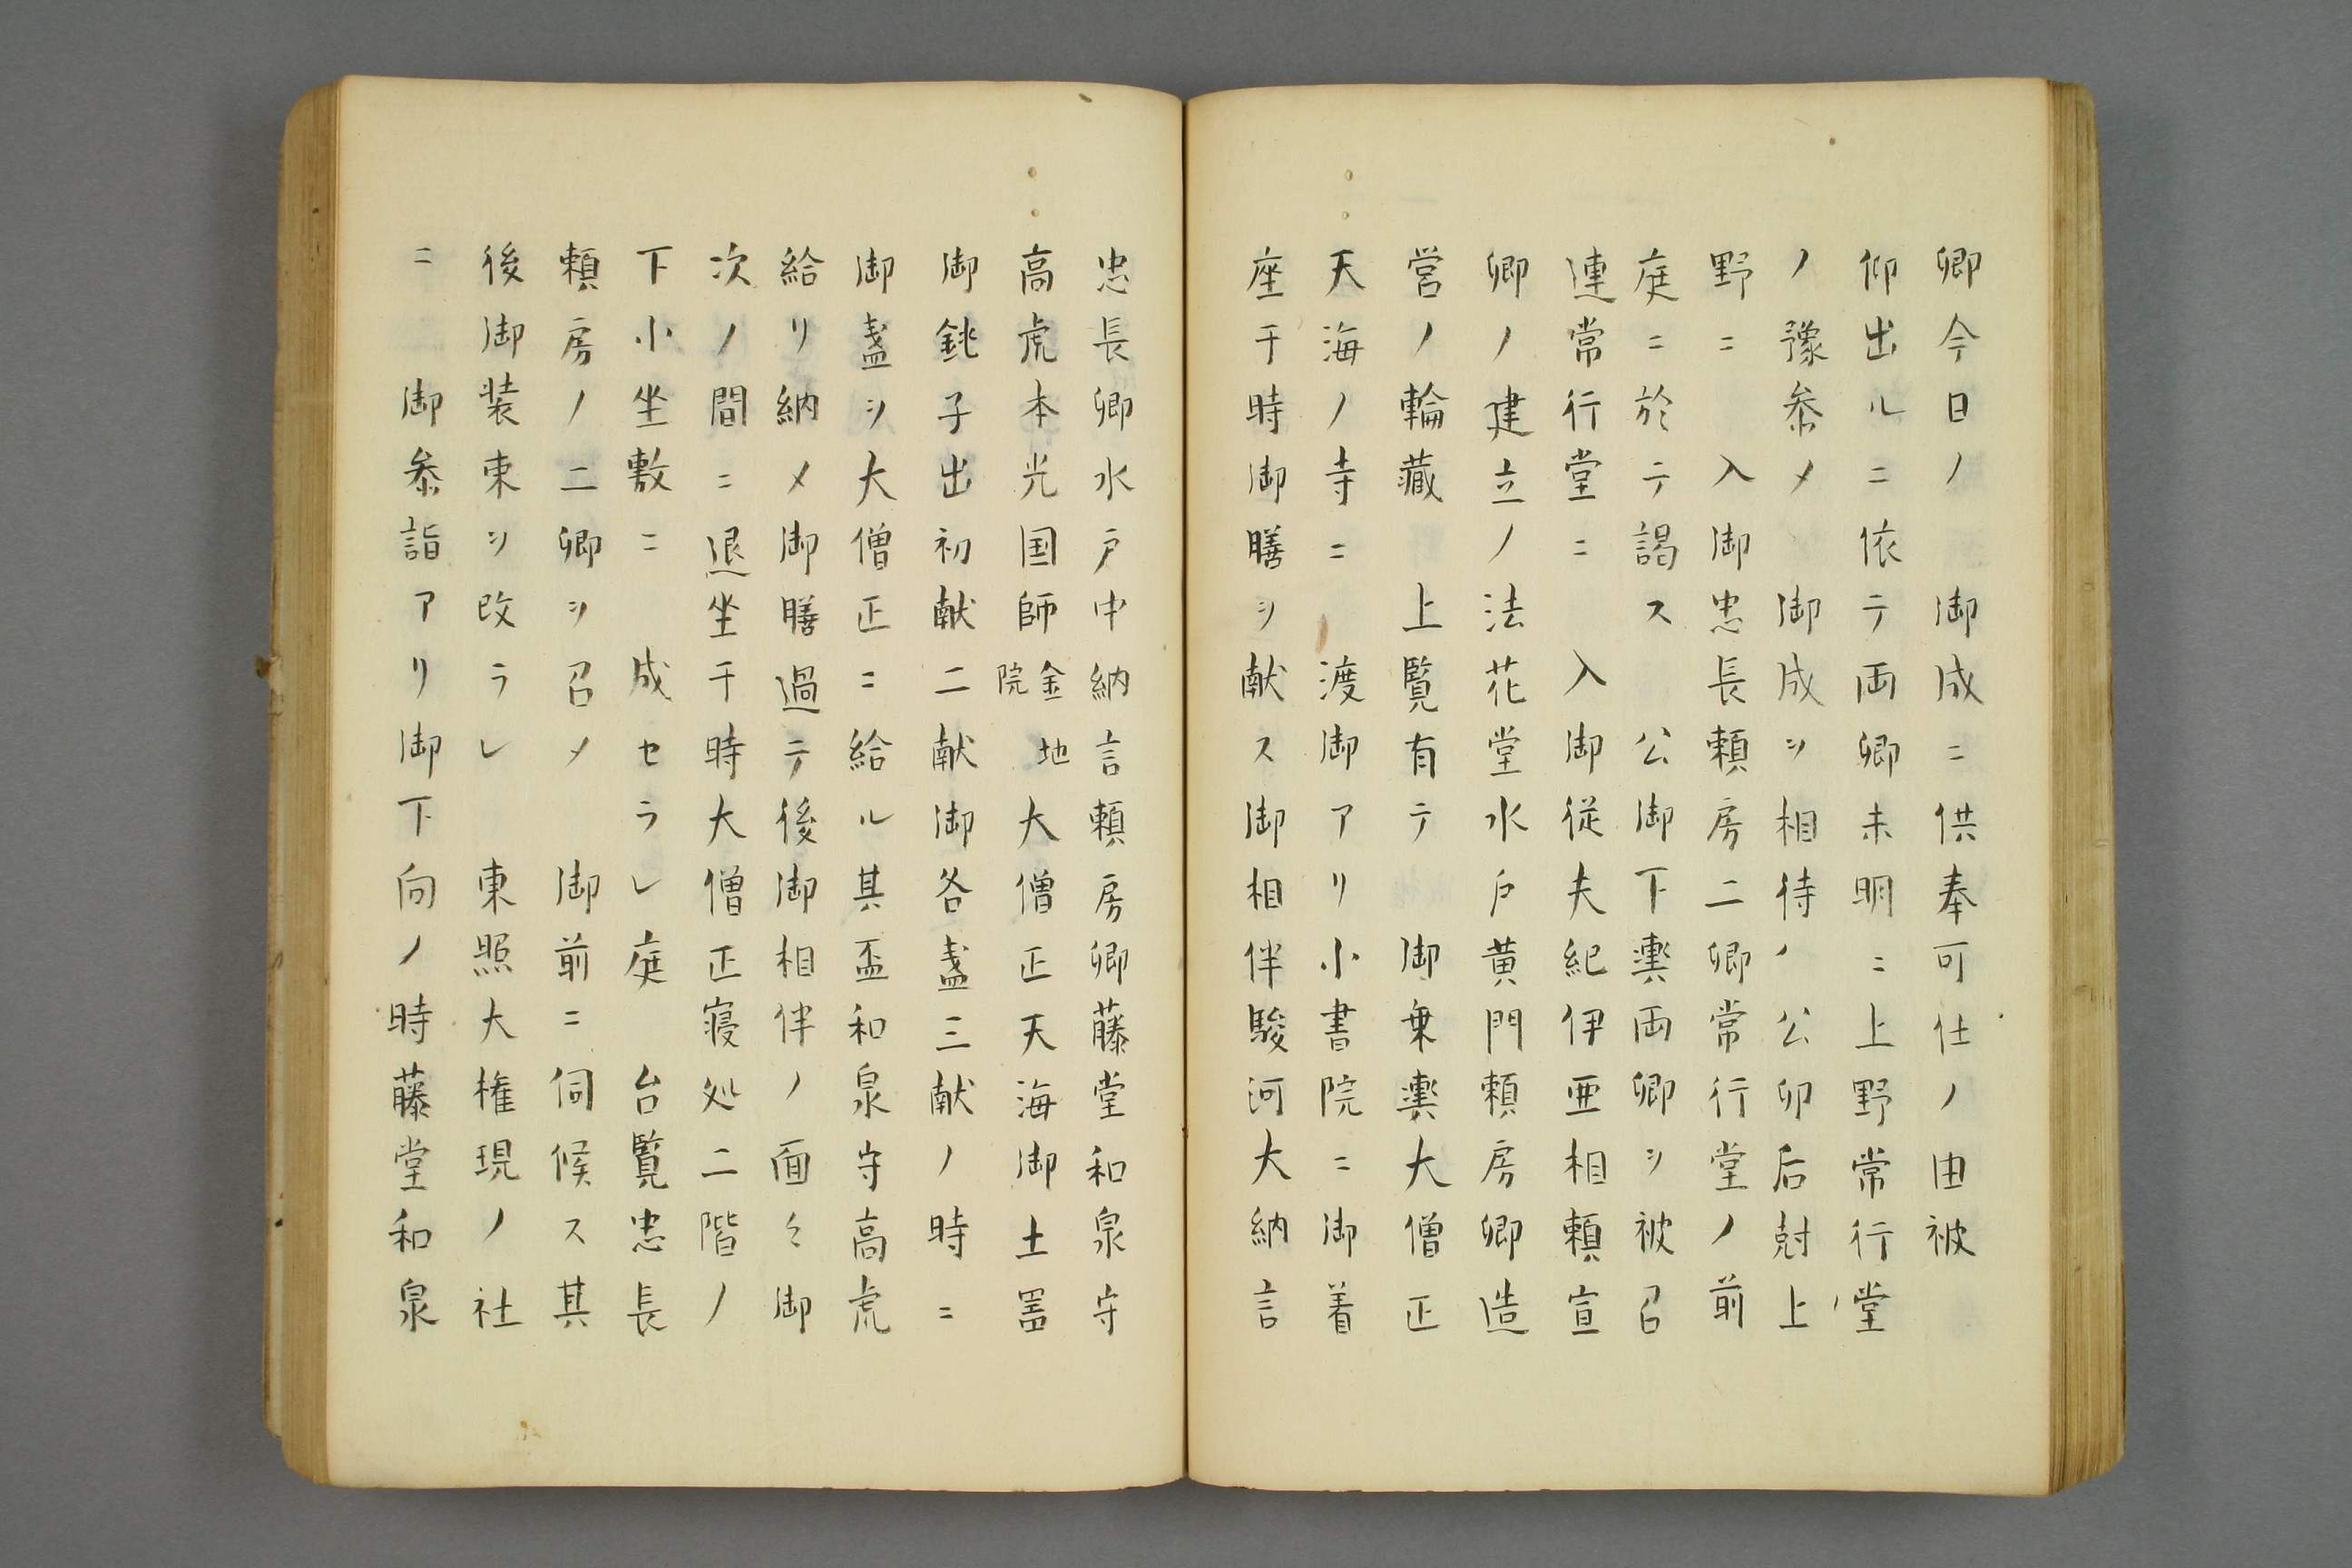 卿今日ノ　御成ニ供奉可仕ノ由被
仰出ルニ依テ両卿未明ニ上野常行堂
ノ豫参メ　御成ヲ相待ノ公卯后尅上
野ニ　入御忠長頼房二卿常行堂ノ前
庭ニ於テ謁ス　公御下輿両卿ヲ被召
連常行堂ニ　入御従夫紀伊亜相頼宣
卿ノ建立ノ法花堂水戸黄門頼房卿造
営ノ輪蔵　上覧有テ　御乗輿大僧正
天海ノ寺ニ　渡御アリ小書院ニ御着
座于時御膳ヲ献ス御相伴駿河大納言
忠長卿水戸中納言頼房卿藤堂和泉守
高虎本光国師金地院大僧正天海御土器
御銚子出初献二献御各盞三献ノ時ニ
御盞ヲ大僧正ニ給ル其盃和泉守高虎
給リ納メ御膳過テ後御相伴ノ面々御
次ノ間ニ退坐于時大僧正寝処二階ノ
下小坐敷ニ　成セラレ庭　台覧忠長
頼房ノ二卿ヲ召メ　御前ニ伺候ス其
後御装束ヲ改ラレ　東照大権現ノ社
ニ　御参詣アリ御下向ノ時藤堂和泉